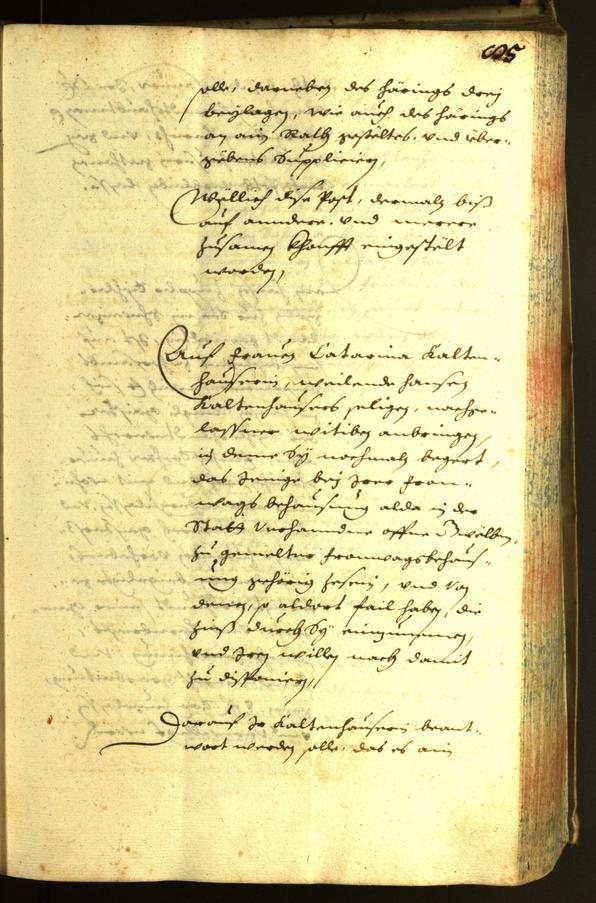 605
solle, darneben des härings drey
beylagen, wie auch des härings
an ain Rath gesteltes und über-
gebens Supplicieren,
Wellich dise Post, dermaln biß
auf anndere und merere
zusamen khonfft eingestelt
worden,
Auf Frauen Catarina Kalten-
hauserin, weilende hansen
Kaltenhausers seligen, nachge-
lassner witiben anbringen,
in deme Sy nochmaln begert,
das Jenige bey Irer Fron-
wags behausung alda in der
Statt verhanndne offne Gwelben,
zu gemelter Fronwagsbehaus-
ung gehörig zesein, und von
denen, so aldort fail haben, die
Zinß durch Sy einzunemen,
und Iren willen nach damit
zu disponieren,
Darauf Ir Kaltenhauserin beant-
wort werden solle, das es ain